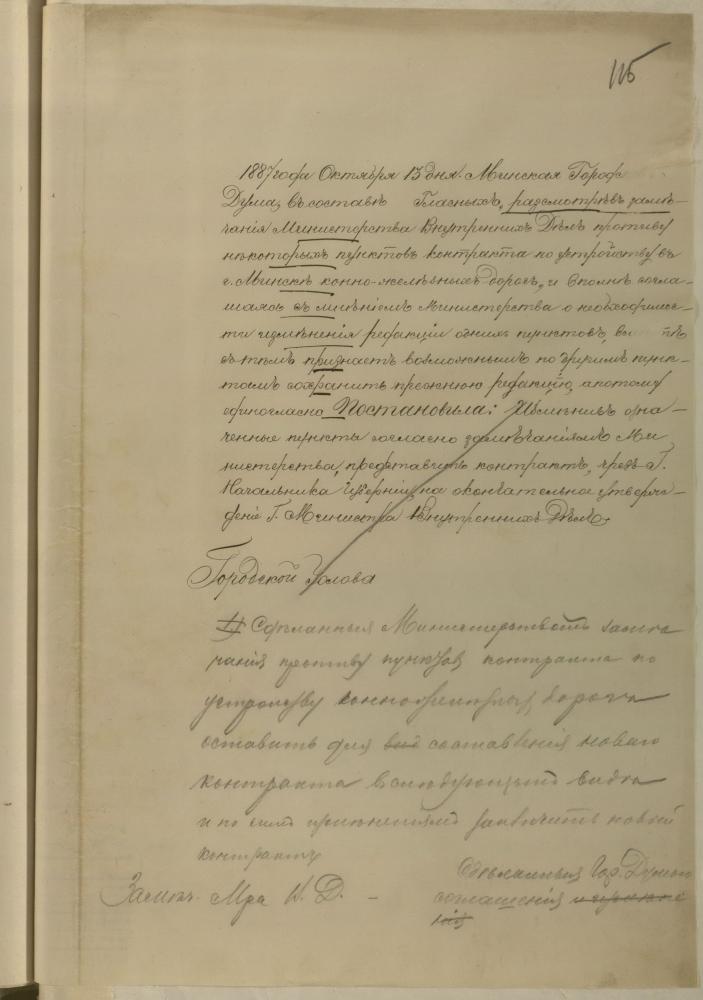 115
1887 года Октября 13 дня. Минская Город
Дума, въ составѣ Гласныхъ, разсмотрѣвъ замѣ-
чанія Министерства Внутреннихъ Дѣлъ противу
нѣкоторыхъ пунктовъ контракта по устройству въ
г. Минскѣ конно-желѣзныхъ дорогъ, и вполнѣ согла-
шаясь съ мнѣніемъ Министерства о необходимос-
ти измѣненія редакціи однихъ пунктовъ,
съ тѣмъ признаетъ возможнымъ по другимъ пунк-
тамъ сохранить прежнюю редакцію, а потому
единогласно Постановила: Измѣнивъ озна-
ченные пункты согласно замѣчаніямъ Ми-
нистерства, представить контрактъ, чрезъ Г.
Начальника Губерніи, на окончательное утверж-
деніе Г. Министра Внутреннихъ Дѣлъ.
Городской Голова
1) Сдѣланныя Министерствомъ замѣ
чанія противу пунктовъ контракта по
устройству конножелѣзныхъ дорогъ
оставить для составленія новаго
контракта въ слѣдующемъ видѣ
и по симъ заключить новый
контрактъ
Сдѣланныя Гор. Думою
Замѣч. М-ра В. Д. –
соглашенія